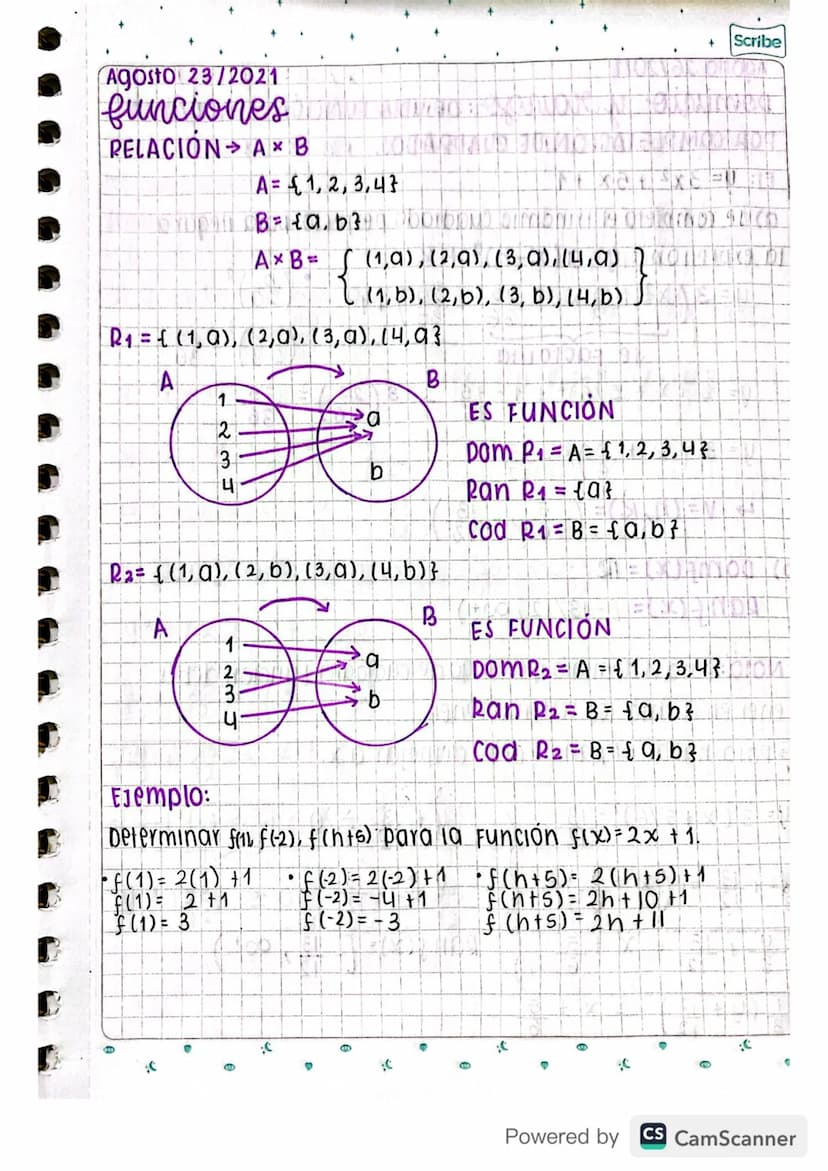 Scribe
Agosto 23/2021
funciones
RELACIÓN → A × B
A = {1, 2, 3, 4}
B = {a, b}
A × B = { (1,a), (2,a), (3,a), (4,a)
(1,b), (2,b), (3,b), (4,b) }
R1 = { (1,a), (2,a), (3,a), (4,a}
A B
1
2
3
4
a
b
ES FUNCIÓN
Dom R1 = A = {1, 2, 3, 4}
Ran R1 = {a}
Cod R1 = B = {a, b}
R2 = {(1,a), (2,b), (3,a), (4,b)}
A B
1
2
3
4
a
b
ES FUNCIÓN
Dom R2 = A = {1, 2, 3, 4}
Ran R2 = B = {a, b}
Cod R2 = B = {a, b}
Ejemplo:
Determinar f(1), f(-2), f(h+5) para la función f(x) = 2x + 1.
• f(1) = 2(1) + 1 • f(-2) = 2(-2) + 1 • f(h+5) = 2(h+5) + 1
f(1) = 2 + 1 f(-2) = -4 + 1 f(h+5) = 2h + 10 + 1
f(1) = 3 f(-2) = -3 f(h+5) = 2h + 11
Powered by CS CamScanner